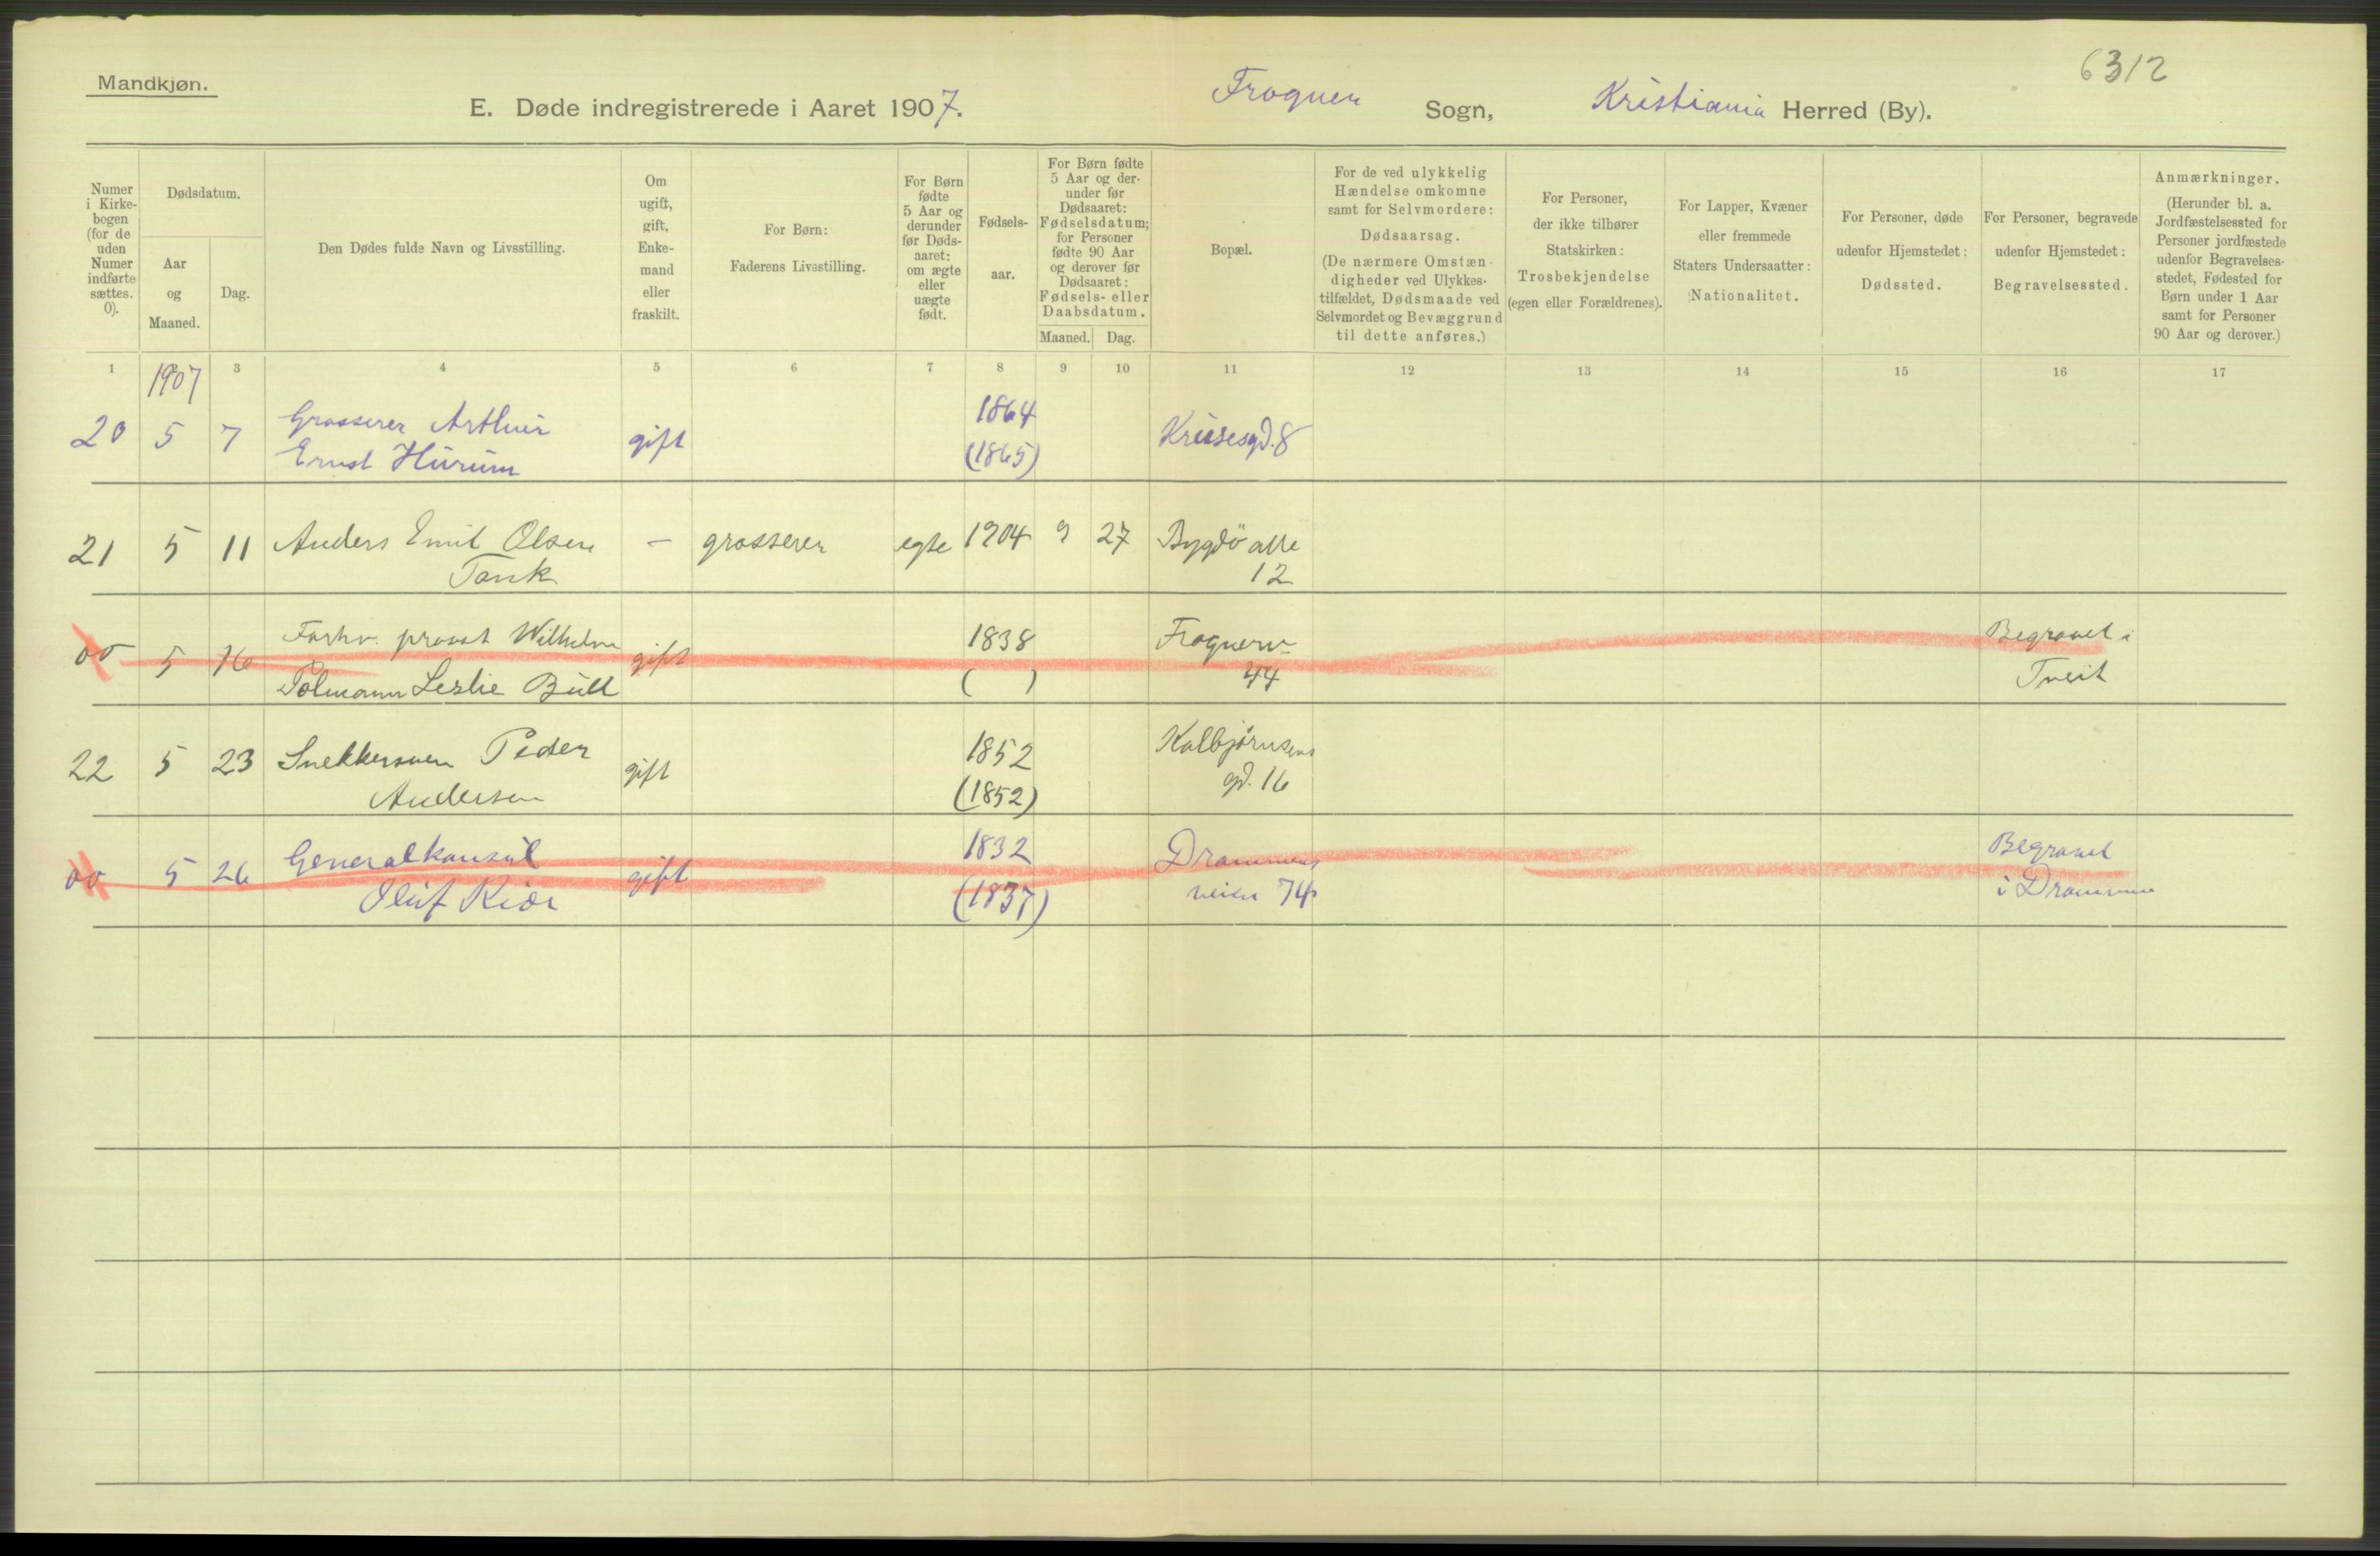 Mandkjøn.
6312
E. Døde indregistrerede i Aaret 1907. Frogner Sogn, Kristiania Herred (By).
Numer i Kirke-
bogen
(for de
uden
Numer
indførte
sættes.
0).
Dødsdatum.
Aar
og
Maaned.
Dag.
Den Dødes fulde Navn og Livsstilling.
Om
ugift,
gift,
Enke-
mand
eller
fraskilt.
For Børn:
Faderens Livsstilling.
For Børn
fødte
5 Aar og
derunder
før Døds-
aaret:
om ægte
eller
uægte
født.
Fødsels-
aar.
For Børn fødte
5 Aar og der-
under før
Dødsaaret:
Fødselsdatum;
for Personer
fødte 90 Aar
og derover før
Dødsaaret:
Fødsels- eller
Daabsdatum.
Maaned. Dag.
Bopæl.
For de ved ulykkelig
Hændelse omkomne
samt for Selvmordere:
Dødsaarsag.
(De nærmere Omstæn-
digheder ved Ulykkes-
tilfældet, Dødsmaade ved
Selvmordet og Bevæggrund
til dette anføres.)
For Personer,
der ikke tilhører
Statskirken:
Trosbekjendelse
(egen eller Forældrenes).
For Lapper, Kvæner
eller fremmede
Staters Undersaatter:
Nationalitet.
For Personer, døde
udenfor Hjemstedet:
Dødssted.
For Personer, begravede
udenfor Hjemstedet:
Begravelsessted.
Anmærkninger.
(Herunder bl. a.
Jordfæstelsessted for
Personer jordfæstede
udenfor Begravelses-
stedet, Fødested for
Børn under 1 Aar
samt for Personer
90 Aar og derover.)
1 3 4 5 6 7 8 9 10 11 12 13 14 15 16 17
1907
20 5 7 Grosserer Arthur gift 1864 Krusesgd. 8
Ernst Hurum (1865)
21 5 11 Anders Emil Olsen — grosserer egte 1904 9 27 Bygdö alle
Tank 12
00 5 16 Forhv. provst Wilhelm gift 1838 Frognerv Begravet i
Polmann Leslie Bull ( ) 44 Tveit
22 5 23 Snekkersven Peder gift 1852 Kolbjørnsens
Andersen (1852) gd. 16
00 5 26 Generalkonsul gift 1832 Drammens Begravet
Oluf Kiær (1837) veien 74 i Drammen